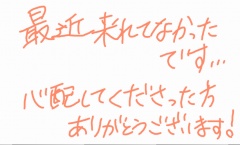 最近来れてなかった
です...
心配してくださった方
ありがとうございます!